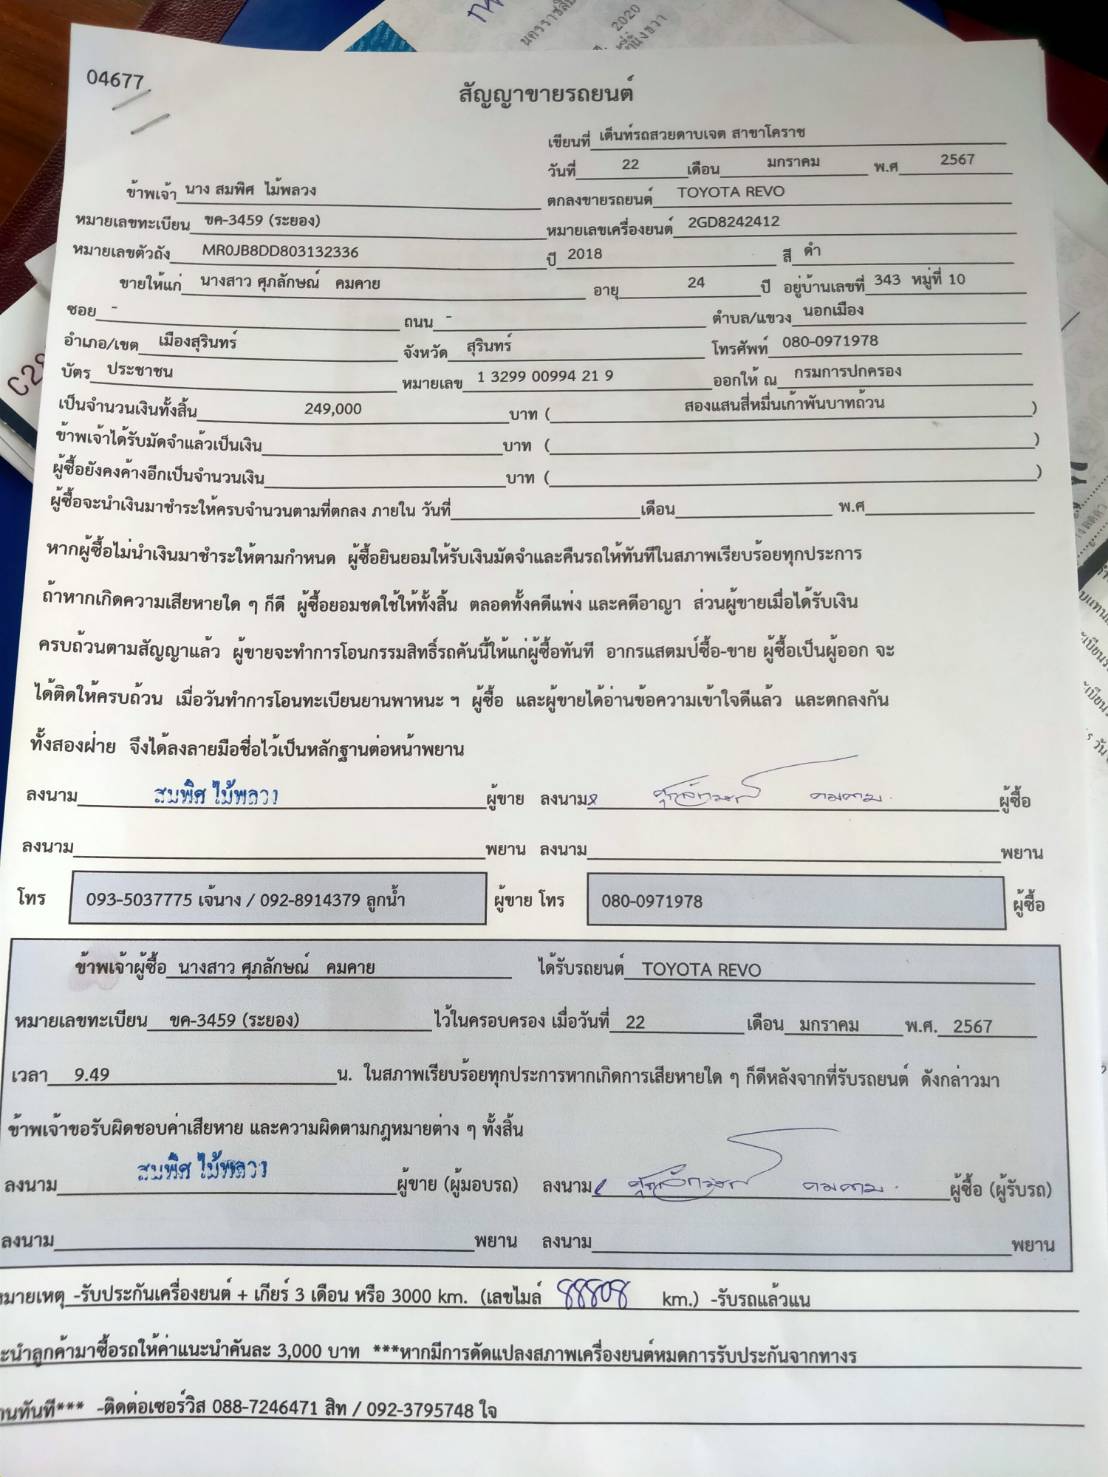 04677
สัญญาขายรถยนต์
เขียนที่ เต็นท์รถสวยดาบเจต สาขาโคราช
วันที่ 22 เดือน มกราคม พ.ศ 2567
ข้าพเจ้า นาง สมพิศ ไม้พลวง ตกลงขายรถยนต์ TOYOTA REVO
หมายเลขทะเบียน ขค-3459 (ระยอง) หมายเลขเครื่องยนต์ 2GD8242412
หมายเลขตัวถัง MR0JB8DD803132336 ปี 2018 สี ดำ
ขายให้แก่ นางสาว ศุภลักษณ์ คมคาย อายุ 24 ปี อยู่บ้านเลขที่ 343 หมู่ที่ 10
ซอย - ถนน - ตำบล/แขวง นอกเมือง
อำเภอ/เขต เมืองสุรินทร์ จังหวัด สุรินทร์ โทรศัพท์ 080-0971978
บัตร ประชาชน หมายเลข 1 3299 00994 21 9 ออกให้ ณ กรมการปกครอง
เป็นจำนวนเงินทั้งสิ้น 249,000 บาท ( สองแสนสี่หมื่นเก้าพันบาทถ้วน )
ข้าพเจ้าได้รับมัดจำแล้วเป็นเงิน บาท ( )
ผู้ซื้อยังคงค้างอีกเป็นจำนวนเงิน บาท ( )
ผู้ซื้อจะนำเงินมาชำระให้ครบจำนวนตามที่ตกลง ภายใน วันที่ เดือน พ.ศ
หากผู้ซื้อไม่นำเงินมาชำระให้ตามกำหนด ผู้ซื้อยินยอมให้รับเงินมัดจำและคืนรถให้ทันทีในสภาพเรียบร้อยทุกประการ
ถ้าหากเกิดความเสียหายใด ๆ ก็ดี ผู้ซื้อยอมชดใช้ให้ทั้งสิ้น ตลอดทั้งคดีแพ่ง และคดีอาญา ส่วนผู้ขายเมื่อได้รับเงิน
ครบถ้วนตามสัญญาแล้ว ผู้ขายจะทำการโอนกรรมสิทธิ์รถคันนี้ให้แก่ผู้ซื้อทันที อากรแสตมป์ซื้อ-ขาย ผู้ซื้อเป็นผู้ออก จะ
ได้ติดให้ครบถ้วน เมื่อวันทำการโอนทะเบียนยานพาหนะ ฯ ผู้ซื้อ และผู้ขายได้อ่านข้อความเข้าใจดีแล้ว และตกลงกัน
ทั้งสองฝ่าย จึงได้ลงลายมือชื่อไว้เป็นหลักฐานต่อหน้าพยาน
ลงนาม สมพิศ ไม้พลวง ผู้ขาย ลงนาม ศุภลักษณ์ คมคาย ผู้ซื้อ
ลงนาม พยาน ลงนาม พยาน
โทร 093-5037775 เจ้นาง / 092-8914379 ลูกน้ำ ผู้ขาย โทร 080-0971978 ผู้ซื้อ
ข้าพเจ้าผู้ซื้อ นางสาว ศุภลักษณ์ คมคาย ได้รับรถยนต์ TOYOTA REVO
หมายเลขทะเบียน ขค-3459 (ระยอง) ไว้ในครอบครอง เมื่อวันที่ 22 เดือน มกราคม พ.ศ. 2567
เวลา 9.49 น. ในสภาพเรียบร้อยทุกประการหากเกิดการเสียหายใด ๆ ก็ดีหลังจากที่รับรถยนต์ ดังกล่าวมา
ข้าพเจ้าขอรับผิดชอบค่าเสียหาย และความผิดตามกฎหมายต่าง ๆ ทั้งสิ้น
ลงนาม สมพิศ ไม้พลวง ผู้ขาย (ผู้มอบรถ) ลงนาม ศุภลักษณ์ คมคาย ผู้ซื้อ (ผู้รับรถ)
ลงนาม พยาน ลงนาม พยาน
หมายเหตุ -รับประกันเครื่องยนต์ + เกียร์ 3 เดือน หรือ 3000 km. (เลขไมล์ 88808 km.) -รับรถแล้วแน
ะนำลูกค้ามาซื้อรถให้ค่าแนะนำคันละ 3,000 บาท ***หากมีการดัดแปลงสภาพเครื่องยนต์หมดการรับประกันจากทางร
้านทันที*** -ติดต่อเซอร์วิส 088-7246471 สิท / 092-3795748 ใจ